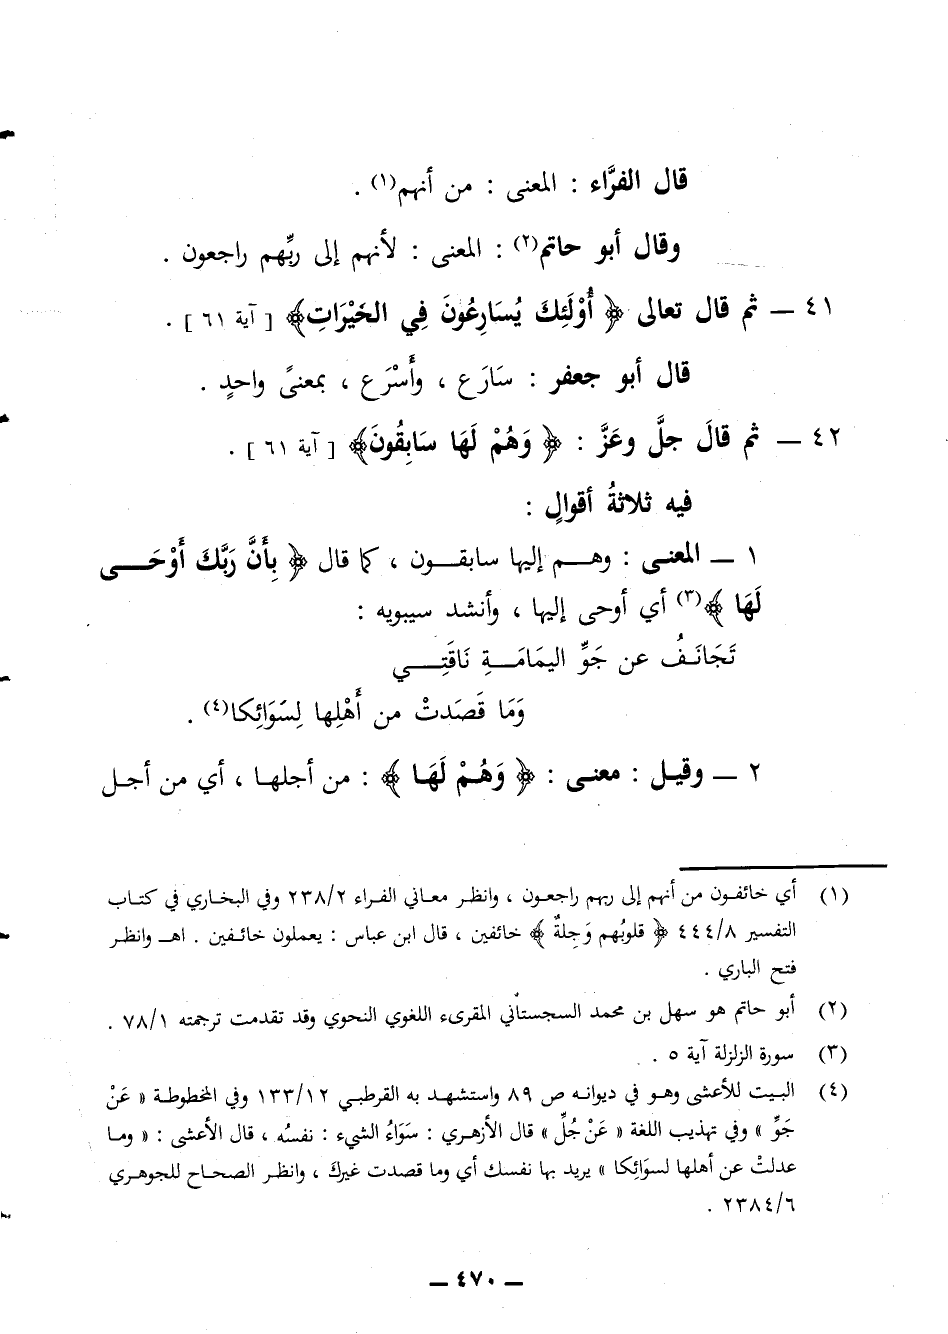 قال الفرَّاء : المعنى : من أنهم(١) .
وقال أبو حاتم(٢) : المعنى : لأنهم إلى ربِّهم راجعون .
٤١ ــ ثم قال تعالى ﴿ أُوْلَئِكَ يُسَارِعُونَ فِي الخَيْرَاتِ﴾ [ آية ٦١ ] .
قال أبو جعفر : سَارَع ، وأَسْرَع ، بمعنىً واحدٍ .
٤٢ ــ ثم قالَ جلَّ وعَزَّ : ﴿ وَهُمْ لَهَا سَابِقُونَ﴾ [ آية ٦١ ] .
فيه ثلاثةُ أقوالٍ :
١ ــ المعنـى : وهـــم إليها سابقـــون ، كما قال ﴿ بِأَنَّ رَبَّكَ أَوْحَـــى
لَهَا ﴾(٣) أي أوحى إليها ، وأنشد سيبويه :
تَجَانَـفُ عن جَوِّ اليمَامَـــةِ نَاقَتِـــي
وَمَا قَصَدتْ من أَهْلِها لِسَوَائِكا(٤) .
٢ ــ وقيـل : معنـى : ﴿ وَهُمْ لَهَا ﴾ : من أجلهـا ، أي من أجـل
(١) أي خائفـون من أنهـم إلى ربهم راجعـون ، وانظـر معـاني الفـراء ٢٣٨/٢ وفي البخـاري في كتـاب
التفسير ٤٤٤/٨ ﴿ قلوبُهم وَجِلةٌ ﴾ خائفين ، قال ابن عباس : يعملون خائـفين . اهـ وانظـر
فتح الباري .
(٢) أبو حاتم هو سهل بن محمد السجستاني المقرىء اللغوي النحوي وقد تقدمت ترجمته ٧٨/١ .
(٣) سورة الزلزلة آية ٥ .
(٤) البـيت للأعشى وهـو في ديوانـه ص ٨٩ واستشهـد به القرطبـي ١٣٣/١٢ وفي المخطوطـة « عَنْ
جَوِّ » وفي تهذيب اللغة « عَنْ جُلِّ » قال الأزهـري : سَوَاءُ الشيء : نفسُـه ، قال الأعشى : « ومـا
عدلتْ عن أهلها لسوَائِكا » يريد بها نفسك أي وما قصدت غيركَ ، وانظـر الصحـاح للجوهـري
٢٣٨٤/٦ .
ــ ٤٧٠ ــ